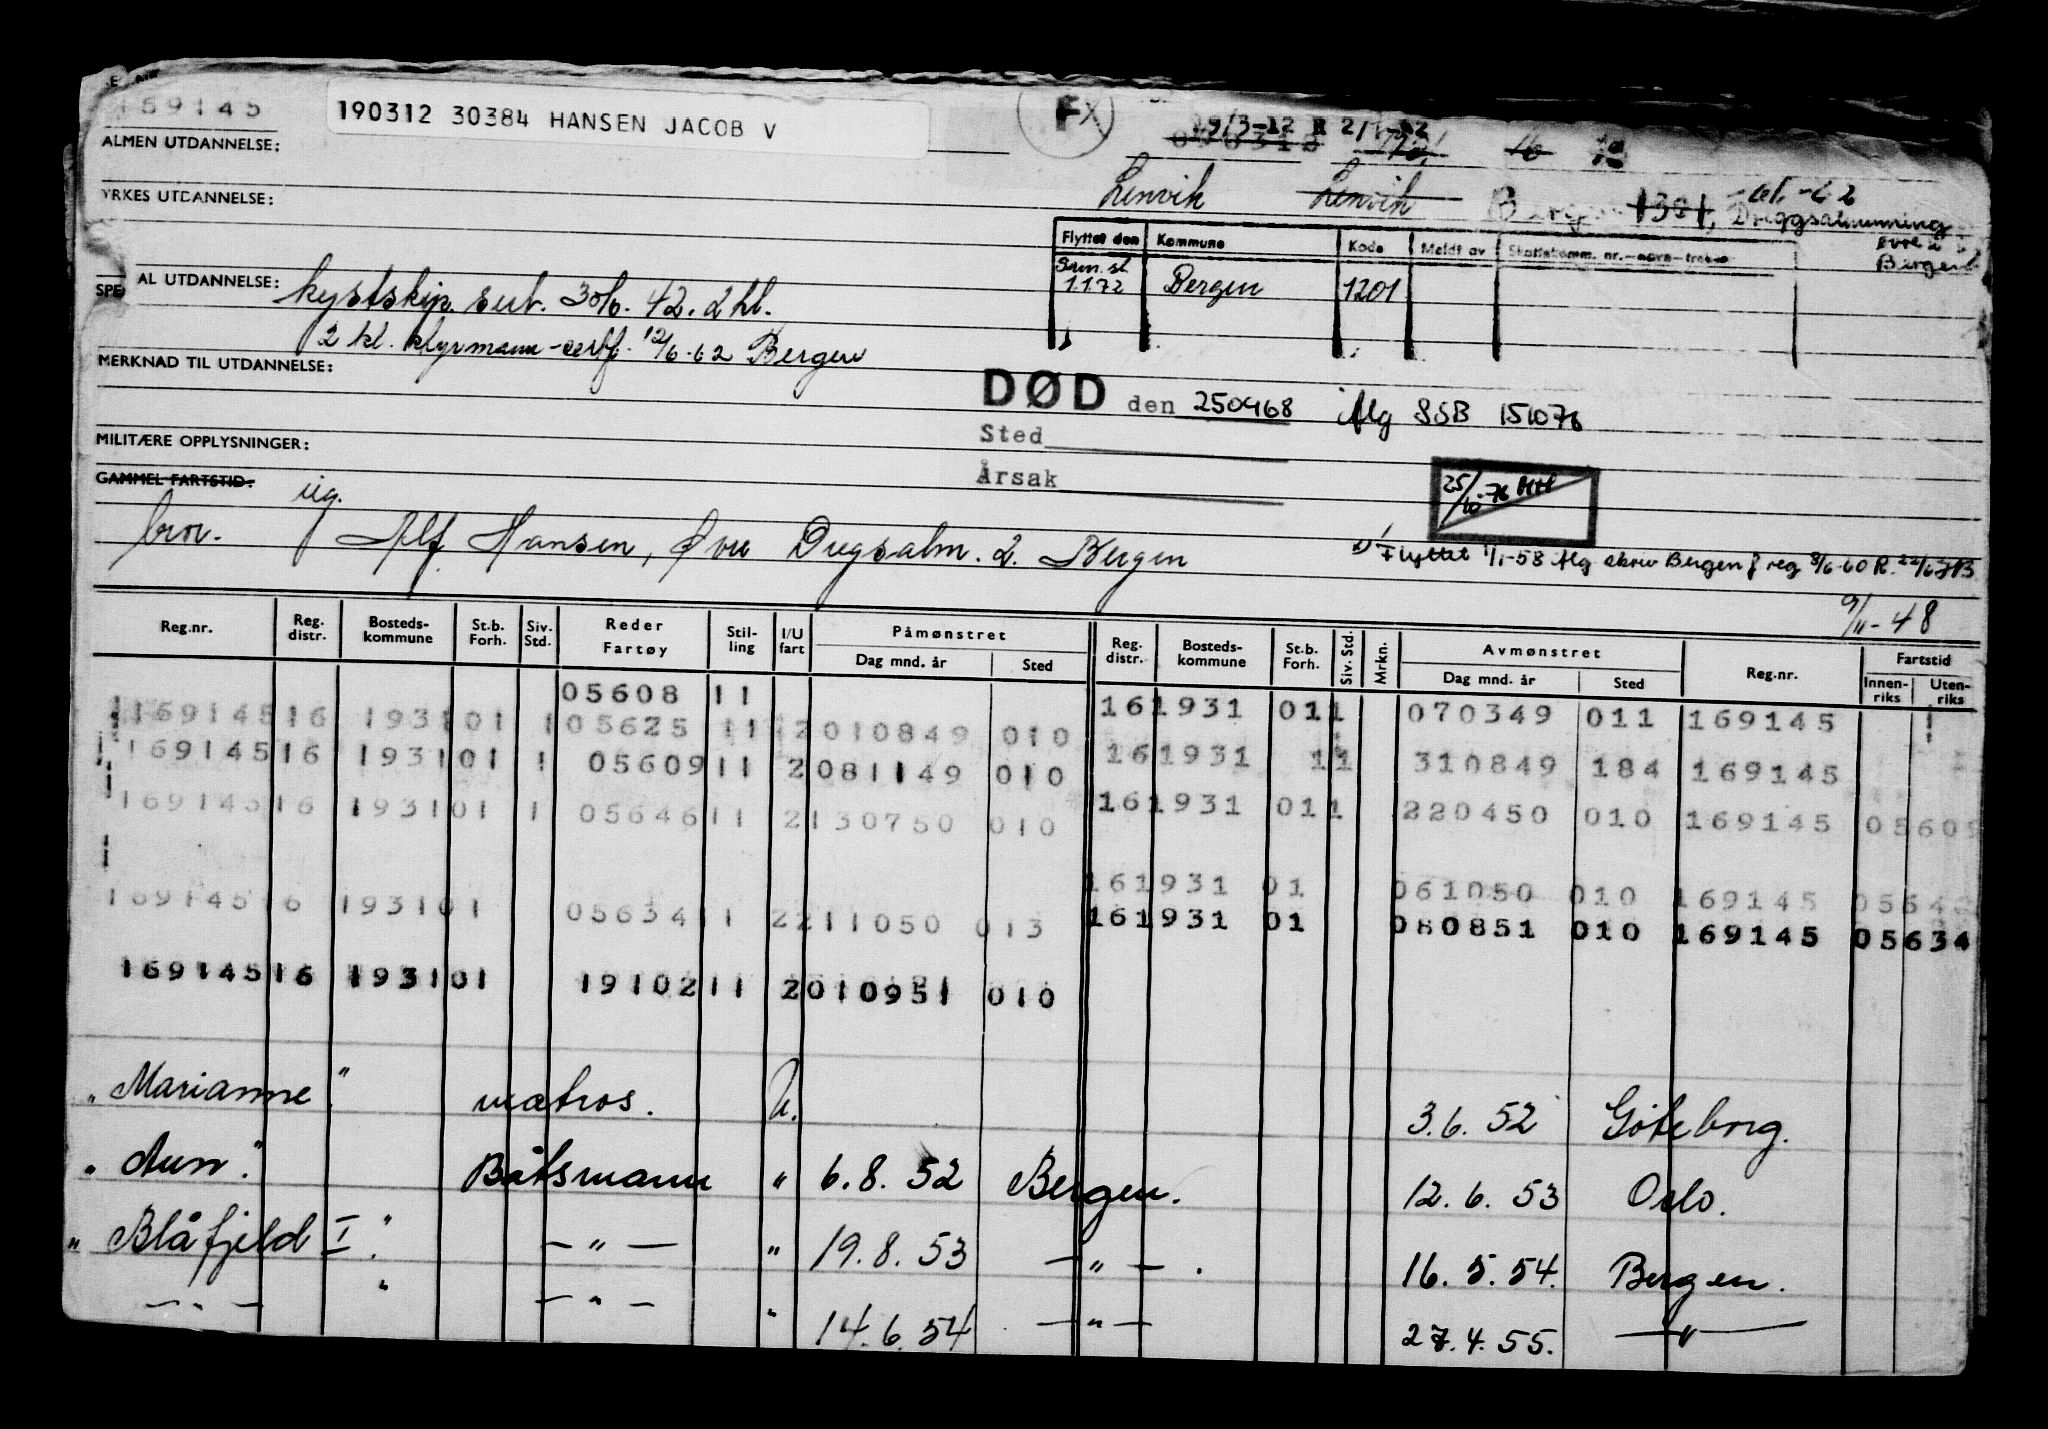 169145
190312 30384 HANSEN JACOB V
FX
19/3-12 R 2/1-62
ALMEN UTDANNELSE:
Lenvik Lenvik Bergen 1301,
YRKES UTDANNELSE:
Bergen
Flyttet den Kommune Kode Meldt av Skattekomm. nr.—navn—trekk
1172 Bergen 1201
SPESIAL UTDANNELSE: kystskip. sert. 30/6. 42. 2 kl.
2 kl. styrmann-sertf. 12/6.62 Bergen
MERKNAD TIL UTDANNELSE:
DØD den 250468 Mlg SSB 151076
Sted
MILITÆRE OPPLYSNINGER:
Årsak
GAMMEL FARTSTID: ug.
25/10-76
bror. Alf Hansen, Øvre Dregsalm. 2. Bergen
Flyttet 1/1-58 Mlg skriv Bergen f reg 8/6-60 R. 22/6
9/11-48
Reg.nr. Reg. distr. Bosteds-kommune St.b. Forh. Siv. Std. Reder Fartøy Stil-ling I/U fart Påmønstret Dag mnd. år Sted Reg. distr. Bosteds-kommune St.b. Forh. Siv. Std. Mrkn. Avmønstret Dag mnd. år Sted Reg.nr. Fartstid Innen-riks Uten-riks
05608 11 161931 011 070349 011 169145
169145 16 1931 01 1 05625 11 2 010849 010 161931 11 310849 184 169145
169145 16 1931 01 1 05609 11 2 081149 010 161931 011 220450 010 169145 05609
169145 16 1931 01 1 05646 11 2 130750 010 161931 01 061050 010 169145 05646
169145 16 1931 01 05634 11 2 211050 013 161931 01 080851 010 169145 05634
169145 16 1931 01 19102 11 2 010951 010
"Marianne". matros. U. 3.6.52 Göteborg.
"Aun". Båtsmann " 6.8.52 Bergen. 12.6.53 Oslo.
"Blåfjeld I". —"— " 19.8.53 —"—. 16.5.54. Bergen.
—"— " —"— " 14.6.54 —"— 27.4.55. —"—